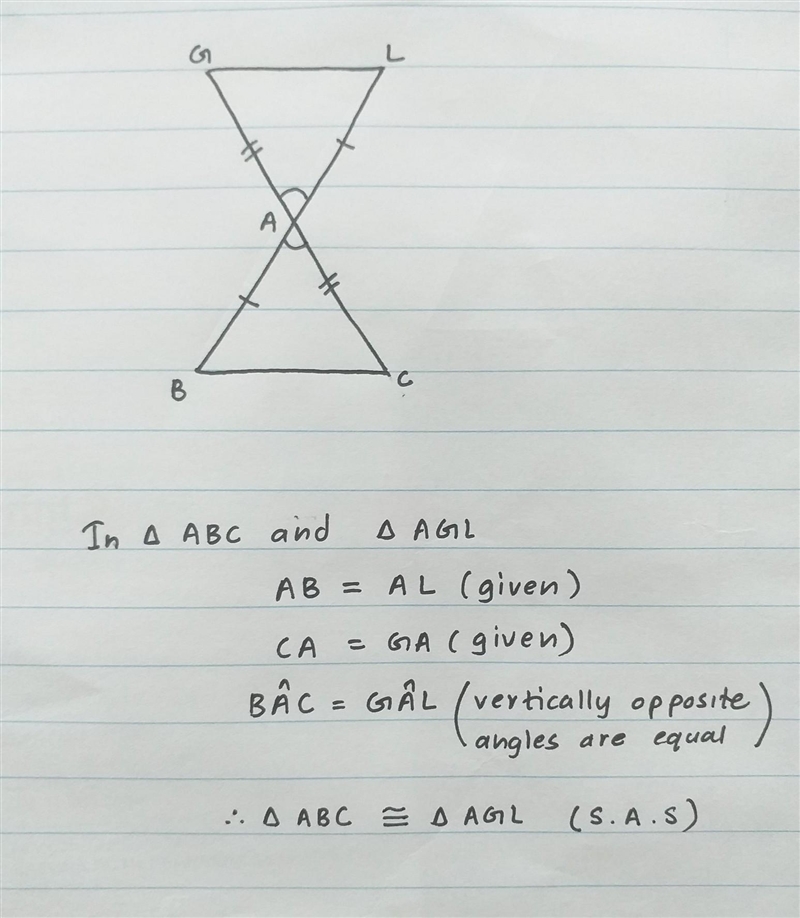 G L
A
B C
In Δ ABC and Δ AGL
AB = AL (given)
CA = GA (given)
BÂC = GÂL (vertically opposite
angles are equal)
∴ Δ ABC ≅ Δ AGL (S.A.S)